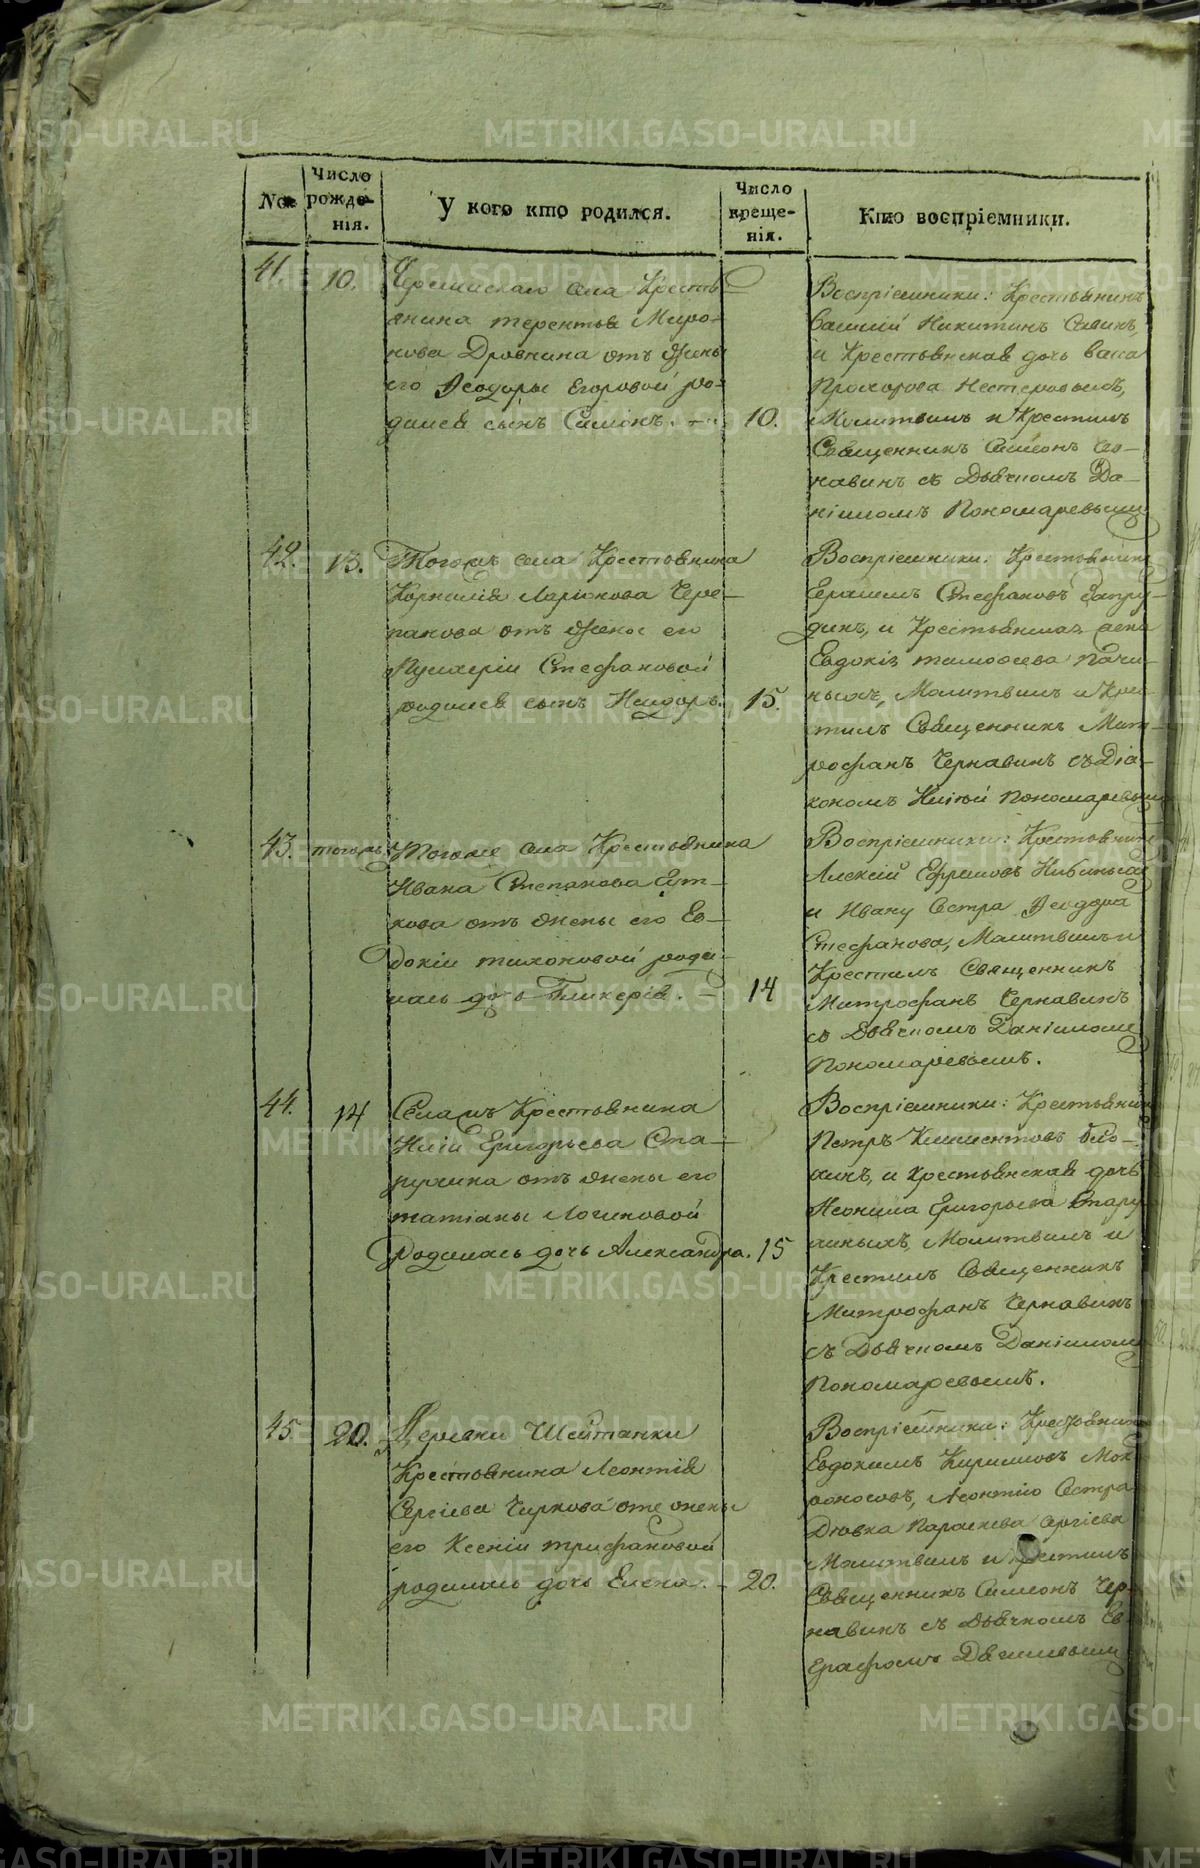 №
Число рожде-нія.
У кого кто родился.
Число креще-нія.
Кто воспріемники.
41.
10.
села Крестья-
янина терентья Миро-
нова Дровнина отъ жены
его Ѳеодоры Егоровой ро-
дился сынъ Симіонъ. —
10.
Воспріемники: Крестьянинъ
Василій Никитинъ Савинъ,
и Крестьянская дочь
Прохорова
Молитвилъ и Крестилъ
Священникъ Симеонъ Че-
навинъ съ Дьячкомъ Да-
ніиломъ Пономаревымъ
42.
13.
Тогожъ села Крестьянина
Корнилія Ларіонова Чере-
панова отъ жены его
Пулхеріи Стефановой
родился сынъ Исидоръ.
15.
Воспріемники: Крестьянинъ
Стефановъ Запру-
динъ, и Крестьянская жена
Евдокія тимоѳеева Пачи-
ныхъ, Молитвилъ и Крес-
тилъ Священникъ Мит-
рофанъ Чернавинъ съ Діа-
кономъ Пономаревымъ
43.
тогожъ
Тогоже села Крестьянина
Ивана Степанова Сут-
кова отъ жены его Ев-
докіи тихоновой роди-
лась дочь Гликерія. —
14
Воспріемники: Крестьянинъ
Алексій Ефремовъ
и Ивану Сестра Ѳеодора
Стефанова, Молитвилъ и
Крестилъ Священникъ
Митрофанъ Чернавинъ
съ Дьячкомъ Даніиломъ
Пономаревымъ.
44.
14
Селажъ Крестьянина
Григорьева Ста-
ричина отъ жены его
татіаны Логиновой
родилась дочь Александра.
15
Воспріемники: Крестьянинъ
Петръ Климентовъ Бло-
хинъ, и Крестьянская дочь
Неонила Григорьева Стари-
чиныхъ, Молитвилъ и
Крестилъ Священникъ
Митрофанъ Чернавинъ
съ Дьячкомъ Даніиломъ
Пономаревымъ.
45
20.
Деревни Шайтанки
Крестьянина Леонтія
Сергіева Чиркова отъ жены
его Ксеніи трифановой
родилась дочь Елена. —
20.
Воспріемники: Крестьянинъ
Евдокимъ Кириловъ Мок-
роносовъ, Леонтію Сестра
Дѣвка Параскева Сергіева
Молитвилъ и Крестилъ
Священникъ Симеонъ Чер-
навинъ съ Дьячкомъ Ев-
графомъ
METRIKI.GASO-URAL.RU